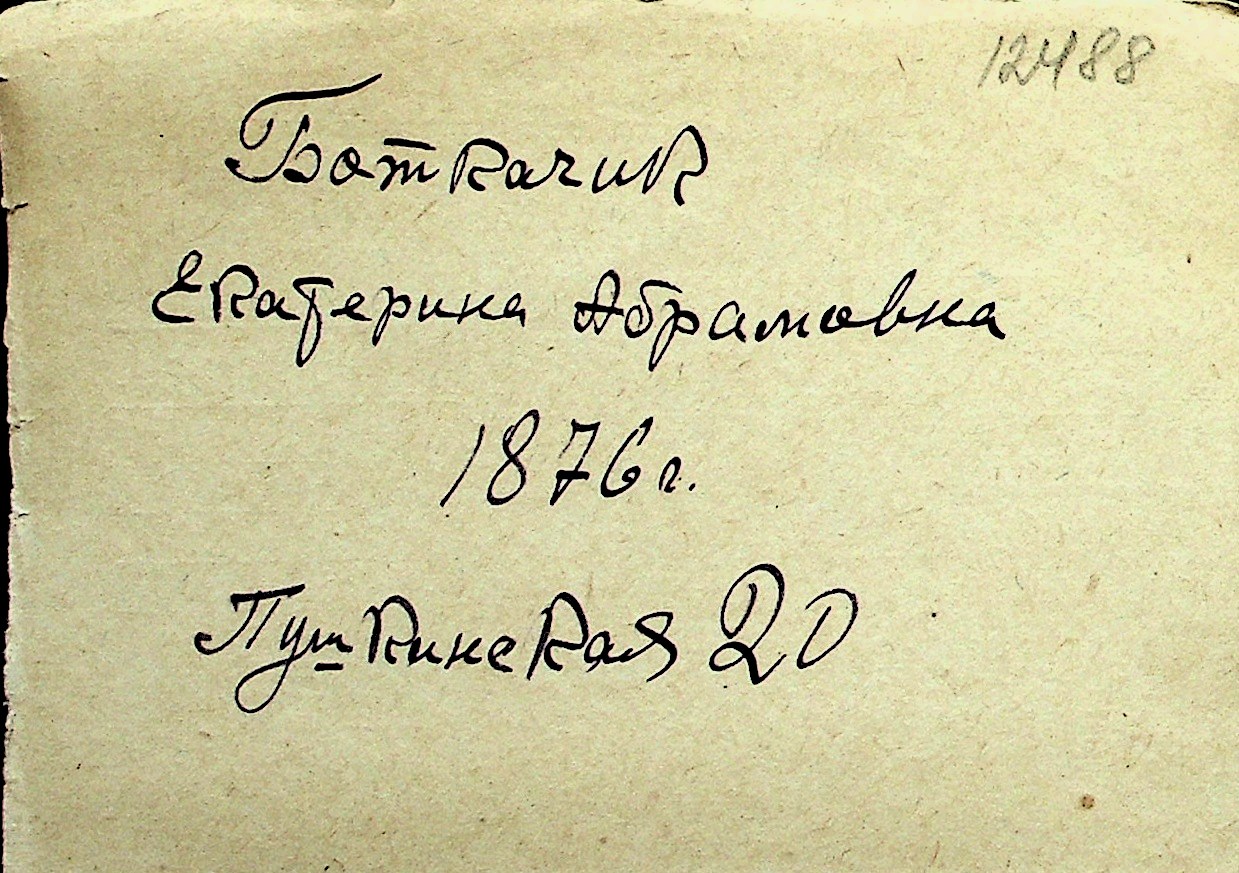 12488
Боткачик
Екатерина Абрамовна
1876 г.
Пушкинская 20